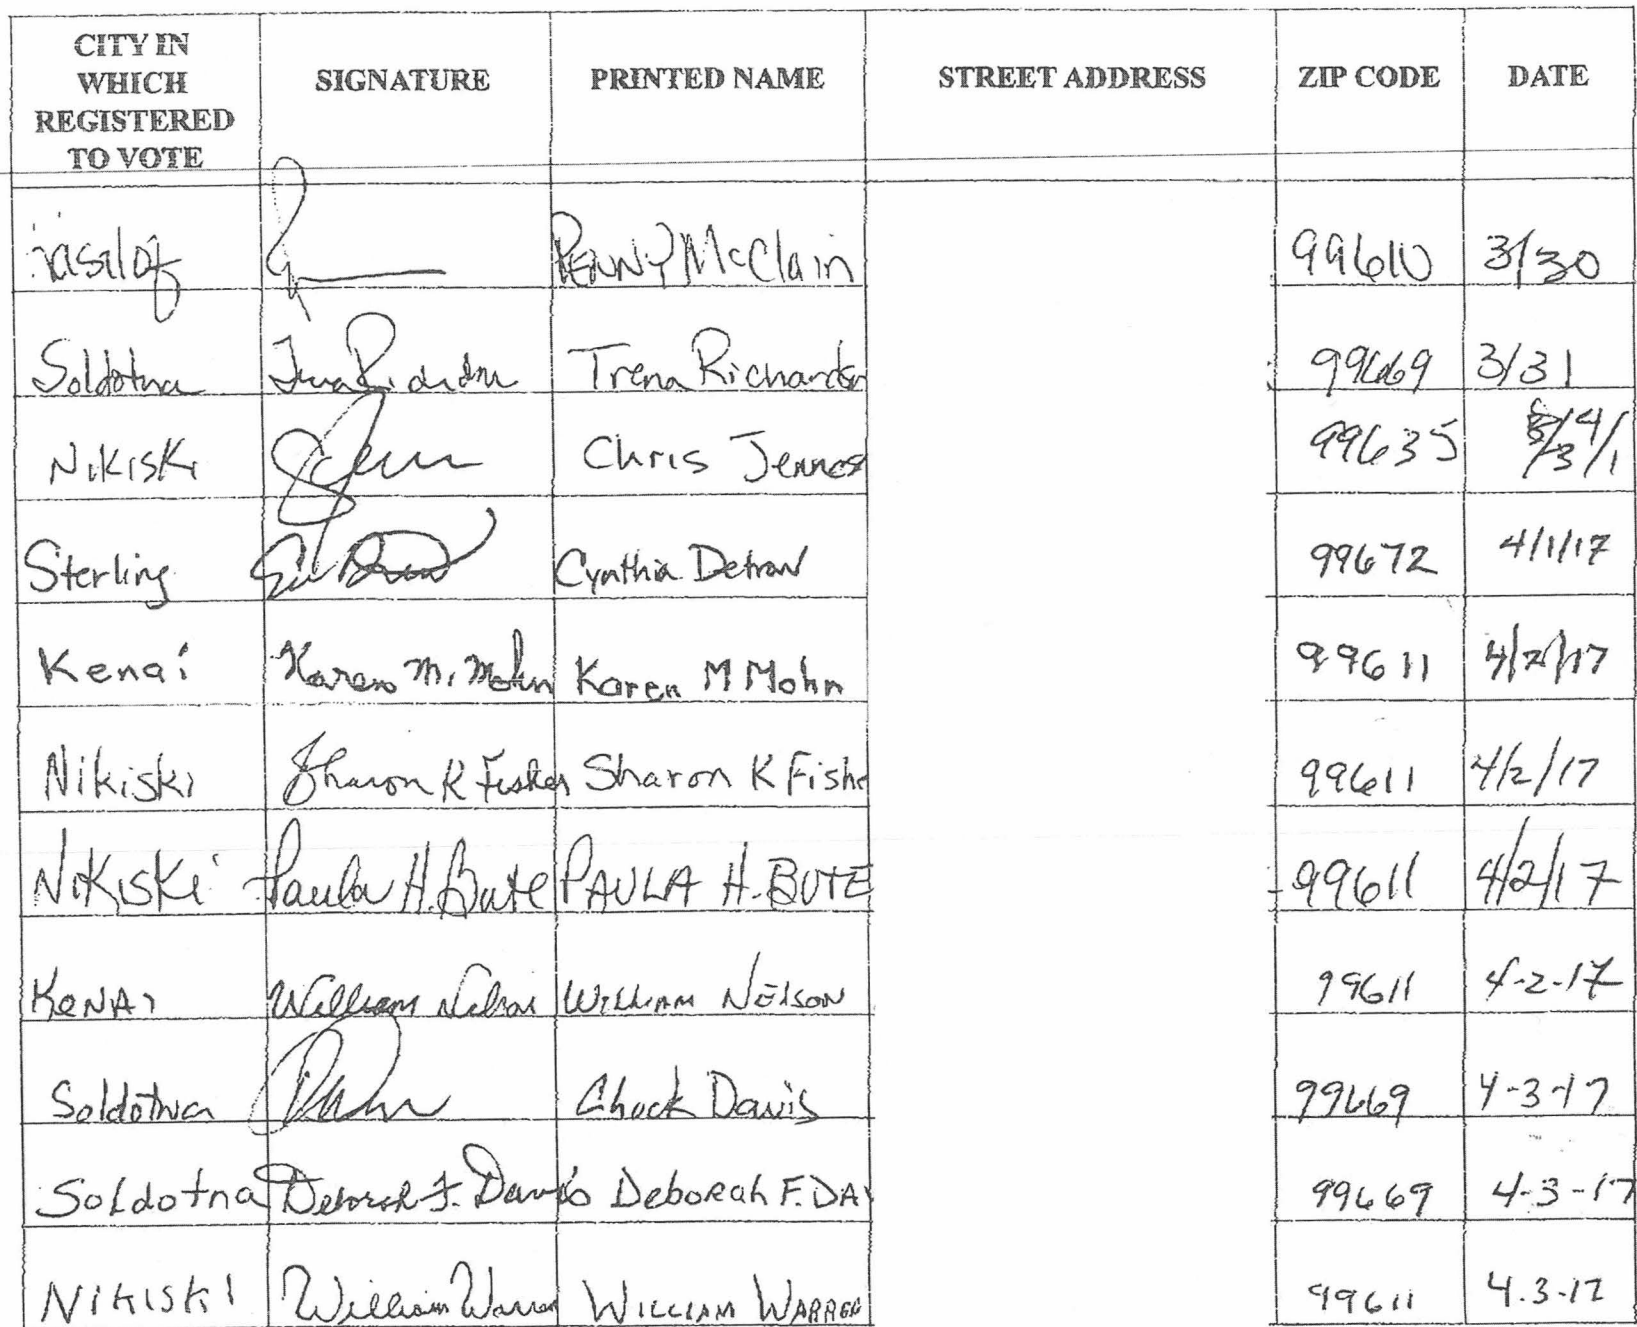 CITY IN WHICH REGISTERED TO VOTE SIGNATURE PRINTED NAME STREET ADDRESS ZIP CODE DATE
iasilof PENNY McClain 99610 3/30
Soldotna Trena Richardson 99669 3/31
Nikiski Chris Jenness 99635 4/1
Sterling Cynthia Detrow 99672 4/1/17
Kenai Karen M. Mohn Karen M Mohn 99611 4/2/17
Nikiski Sharon K Fisher Sharon K Fishe 99611 4/2/17
NiKiSKi Paula H. Bute PAULA H. BUTE 99611 4/2/17
KENAI William Nelson WILLIAM NELSON 99611 4-2-17
Soldotna Chuck Davis 99669 4-3-17
Soldotna Deborah F. Davis Deborah F. DAV 99669 4-3-17
NIKISKI William Warren WILLIAM WARREN 99611 4.3.17